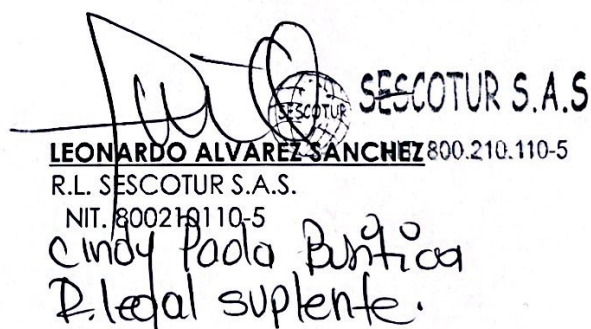 SESCOTUR SESCOTUR S.A.S
LEONARDO ALVAREZ SANCHEZ 800.210.110-5
R.L. SESCOTUR S.A.S.
NIT. 800210110-5
Cindy Paola Buritica
R.legal suplente.